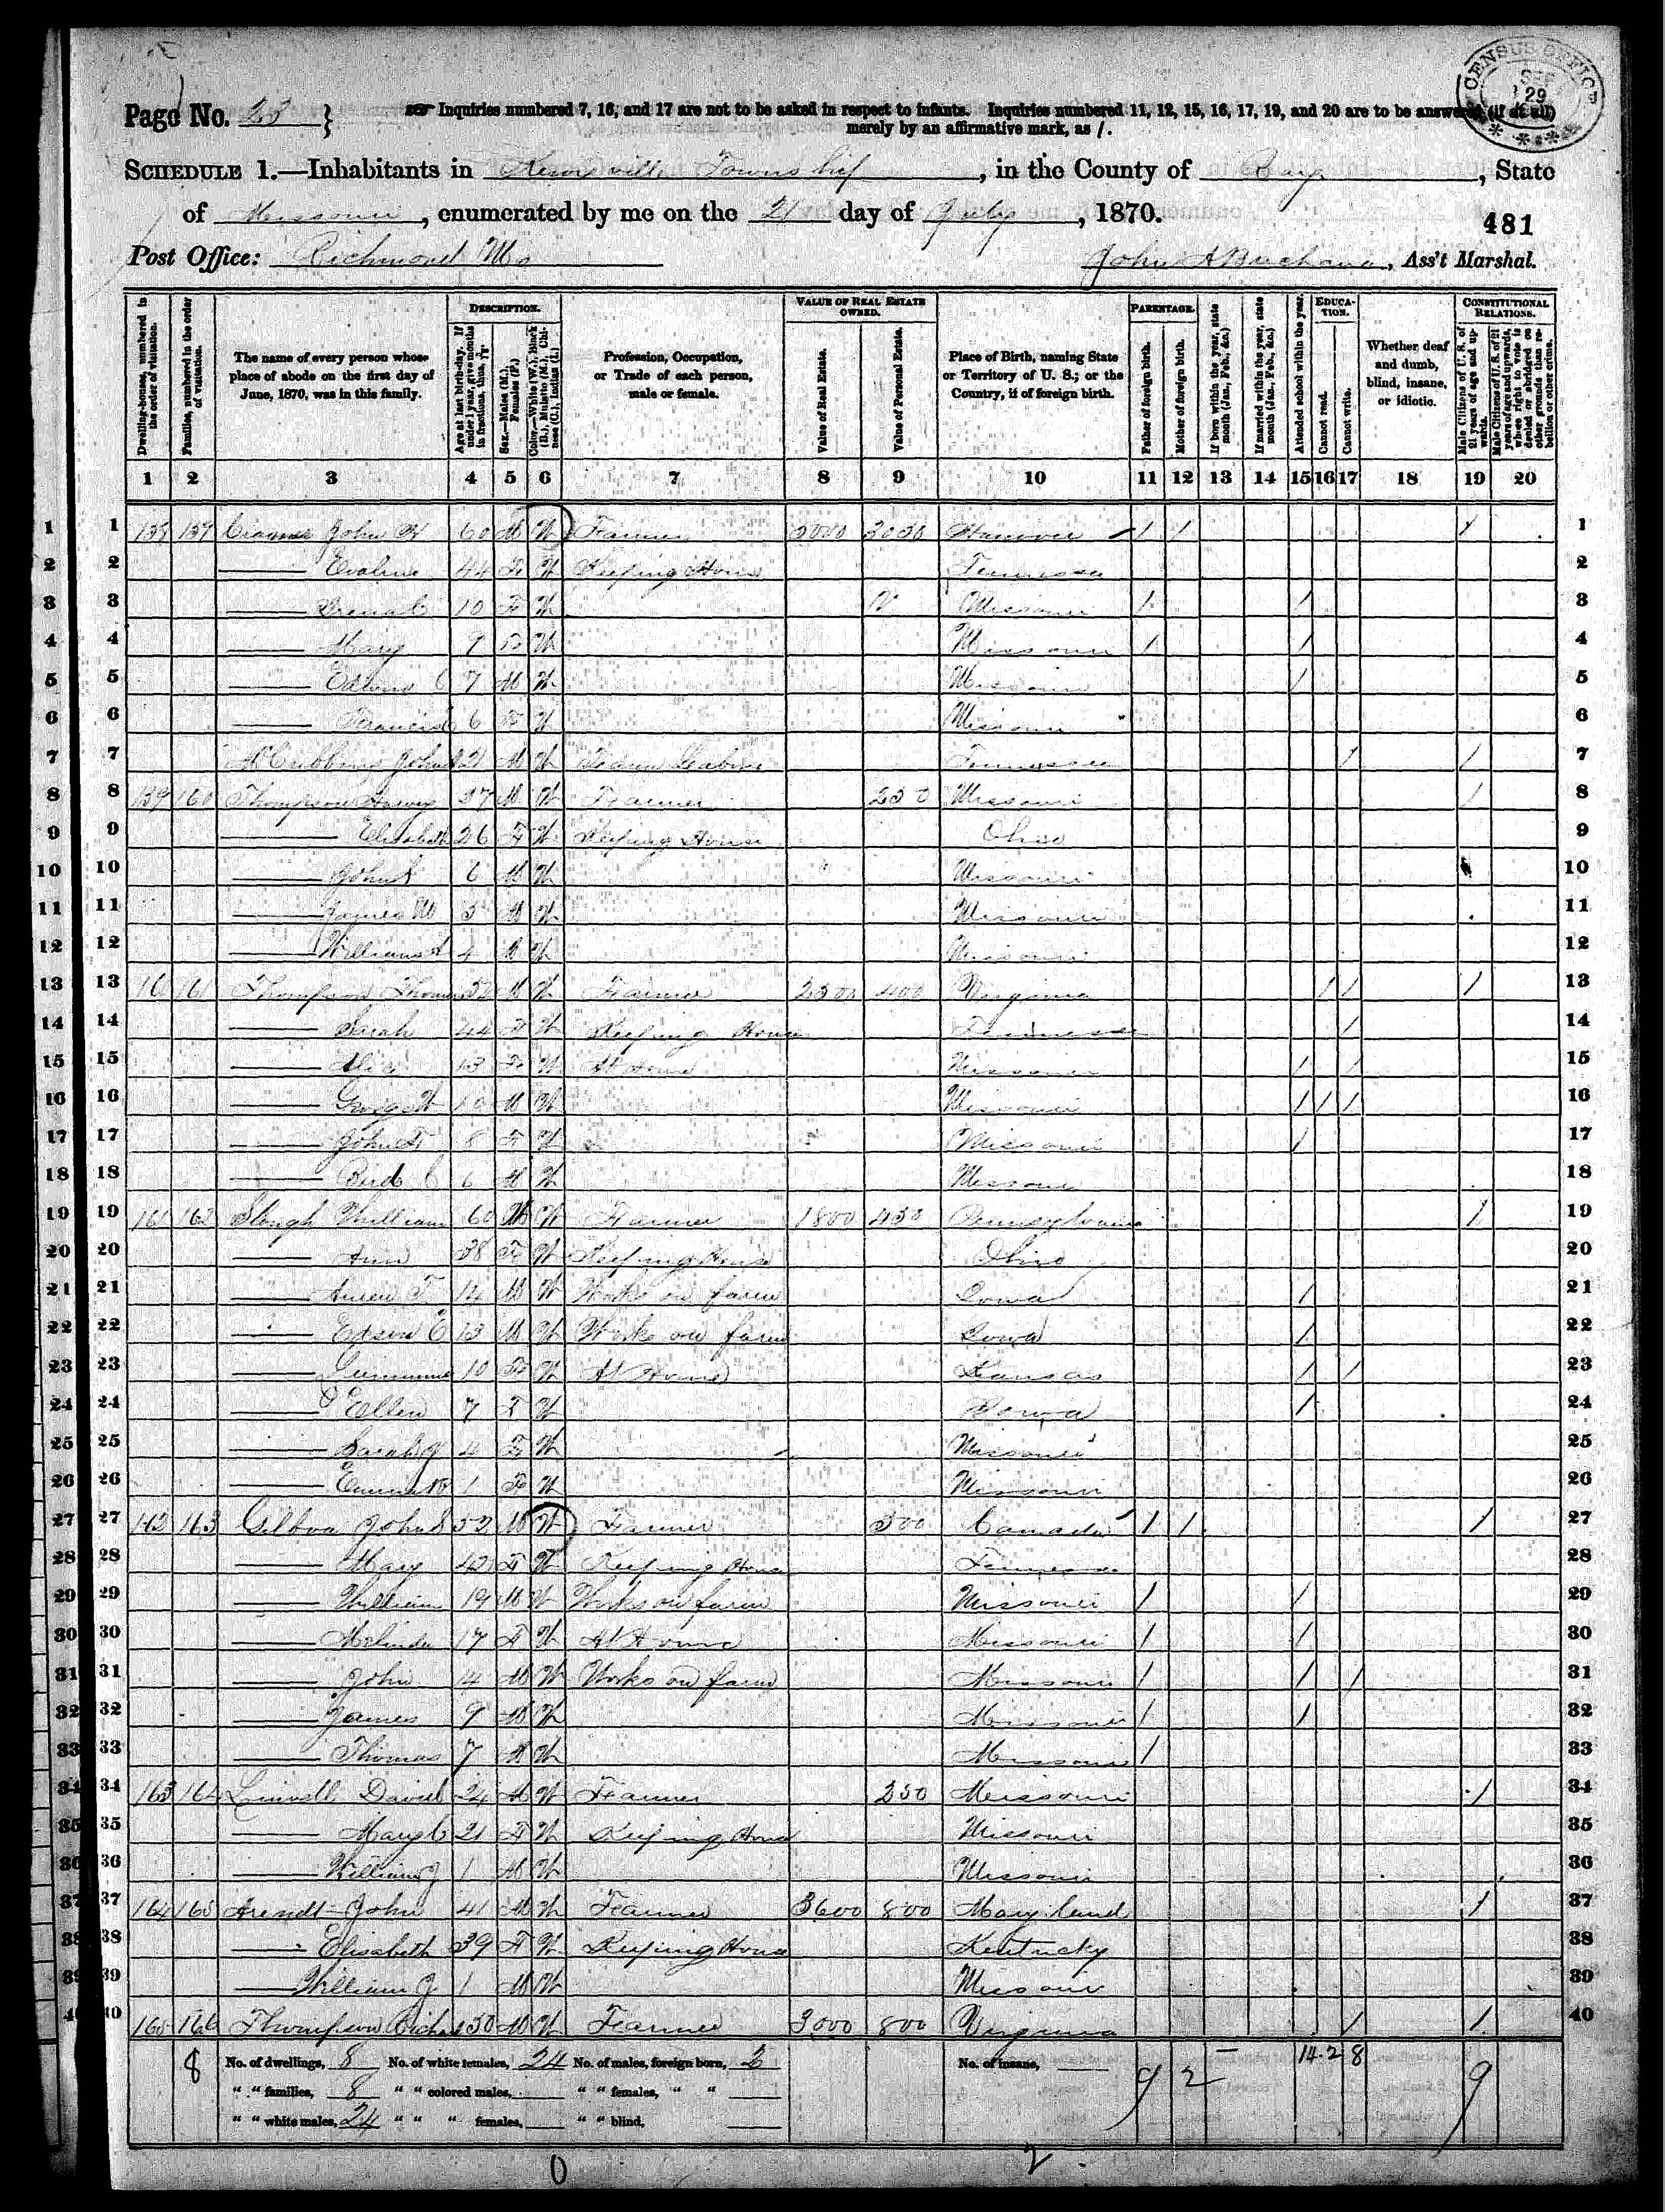 CENSUS OFFICE
SEP
29
Page No. 23 } Inquiries numbered 7, 16, and 17 are not to be asked in respect to infants. Inquiries numbered 11, 12, 15, 16, 17, 19, and 20 are to be answered (if at all)
merely by an affirmative mark, as /.
SCHEDULE 1.—Inhabitants in Township, in the County of Ray, State
of Missouri, enumerated by me on the 21 day of July, 1870.
481
Post Office: Richmond Mo
John A Buchanan, Ass't Marshal.
Dwelling-houses, numbered in the order of visitation.
Families, numbered in the order of visitation.
The name of every person whose place of abode on the first day of June, 1870, was in this family.
DESCRIPTION.
Age at last birth-day. If under 1 year, give months in fractions, thus, 3/12.
Sex.—Males (M.), Females (F.)
Color.—White (W.), Black (B.), Mulatto (M.), Chinese (C.), Indian (I.)
Profession, Occupation, or Trade of each person, male or female.
VALUE OF REAL ESTATE OWNED.
Value of Real Estate.
Value of Personal Estate.
Place of Birth, naming State or Territory of U. S.; or the Country, if of foreign birth.
PARENTAGE.
Father of foreign birth.
Mother of foreign birth.
If born within the year, state month (Jan., Feb., &c.)
If married within the year, state month (Jan., Feb., &c.)
Attended school within the year.
EDUCATION.
Cannot read.
Cannot write.
Whether deaf and dumb, blind, insane, or idiotic.
CONSTITUTIONAL RELATIONS.
Male Citizens of U. S. of 21 years of age and upwards.
Male Citizens of U. S. of 21 years of age and upwards, whose right to vote is denied or abridged on other grounds than rebellion or other crime.
1 2 3 4 5 6 7 8 9 10 11 12 13 14 15 16 17 18 19 20
1 John H 60 M W Farmer 3000 Hanover / / / 1
2 Evaline 44 F W Keeping House Tennessee 2
3 10 F W Missouri / / 3
4 Mary 9 F W Missouri / / 4
5 7 M W Missouri / 5
6 6 F W Missouri 6
7 McCubbins John 21 M W Farm Laborer Tennessee / / 7
8 159 160 Thompson Harvey 37 M W Farmer 250 Missouri / 8
9 Elisabeth 26 F W Keeping House Ohio 9
10 John 6 M W Missouri 10
11 James M 5 M W Missouri 11
12 William 4 M W Missouri 12
13 161 Thompson Thomas 52 M W Farmer 2500 400 Virginia / / / 13
14 Sarah 44 F W Keeping House Tennessee / 14
15 Alice 13 F W At Home Missouri / / 15
16 George 10 M W Missouri / / / 16
17 John 8 F W Missouri / 17
18 Bird 6 M W Missouri 18
19 161 162 Slough William 60 M W Farmer 1800 450 Pennsylvania / 19
20 Ann 38 F W Keeping House Ohio 20
21 14 M W Works on farm Iowa / 21
22 Edson E 13 M W Works on farm Iowa / 22
23 10 F W At Home Kansas / / 23
24 Ellen 7 F W Iowa / 24
25 Sarah J 4 F W Missouri 25
26 Emma 1 F W Missouri 26
27 162 163 John S 52 M W Farmer 300 Canada / / / 27
28 Mary 42 F W Keeping House Tennessee 28
29 William 19 M W Works on farm Missouri / / 29
30 Melinda 17 F W At Home Missouri / / 30
31 John 14 M W Works on farm Missouri / / / 31
32 James 9 M W Missouri / / 32
33 Thomas 7 M W Missouri / 33
34 163 164 Linvill David 24 M W Farmer 250 Missouri / 34
35 Mary C 21 F W Keeping House Missouri 35
36 William J 1 M W Missouri 36
37 164 165 Arendt John 41 M W Farmer 3600 800 Maryland / 37
38 Elisabeth 39 F W Keeping House Kentucky 38
39 William J 1 M W Missouri 39
40 165 166 Thompson Richard 50 M W Farmer 3000 800 Virginia / / 40
8 No. of dwellings, 8 No. of white females, 24 No. of males, foreign born, 2 No. of insane, 9 2 14 2 8 9
" " families, 8 " " colored males, " " females, " "
" " white males, 24 " " " females, " " blind,
0 2